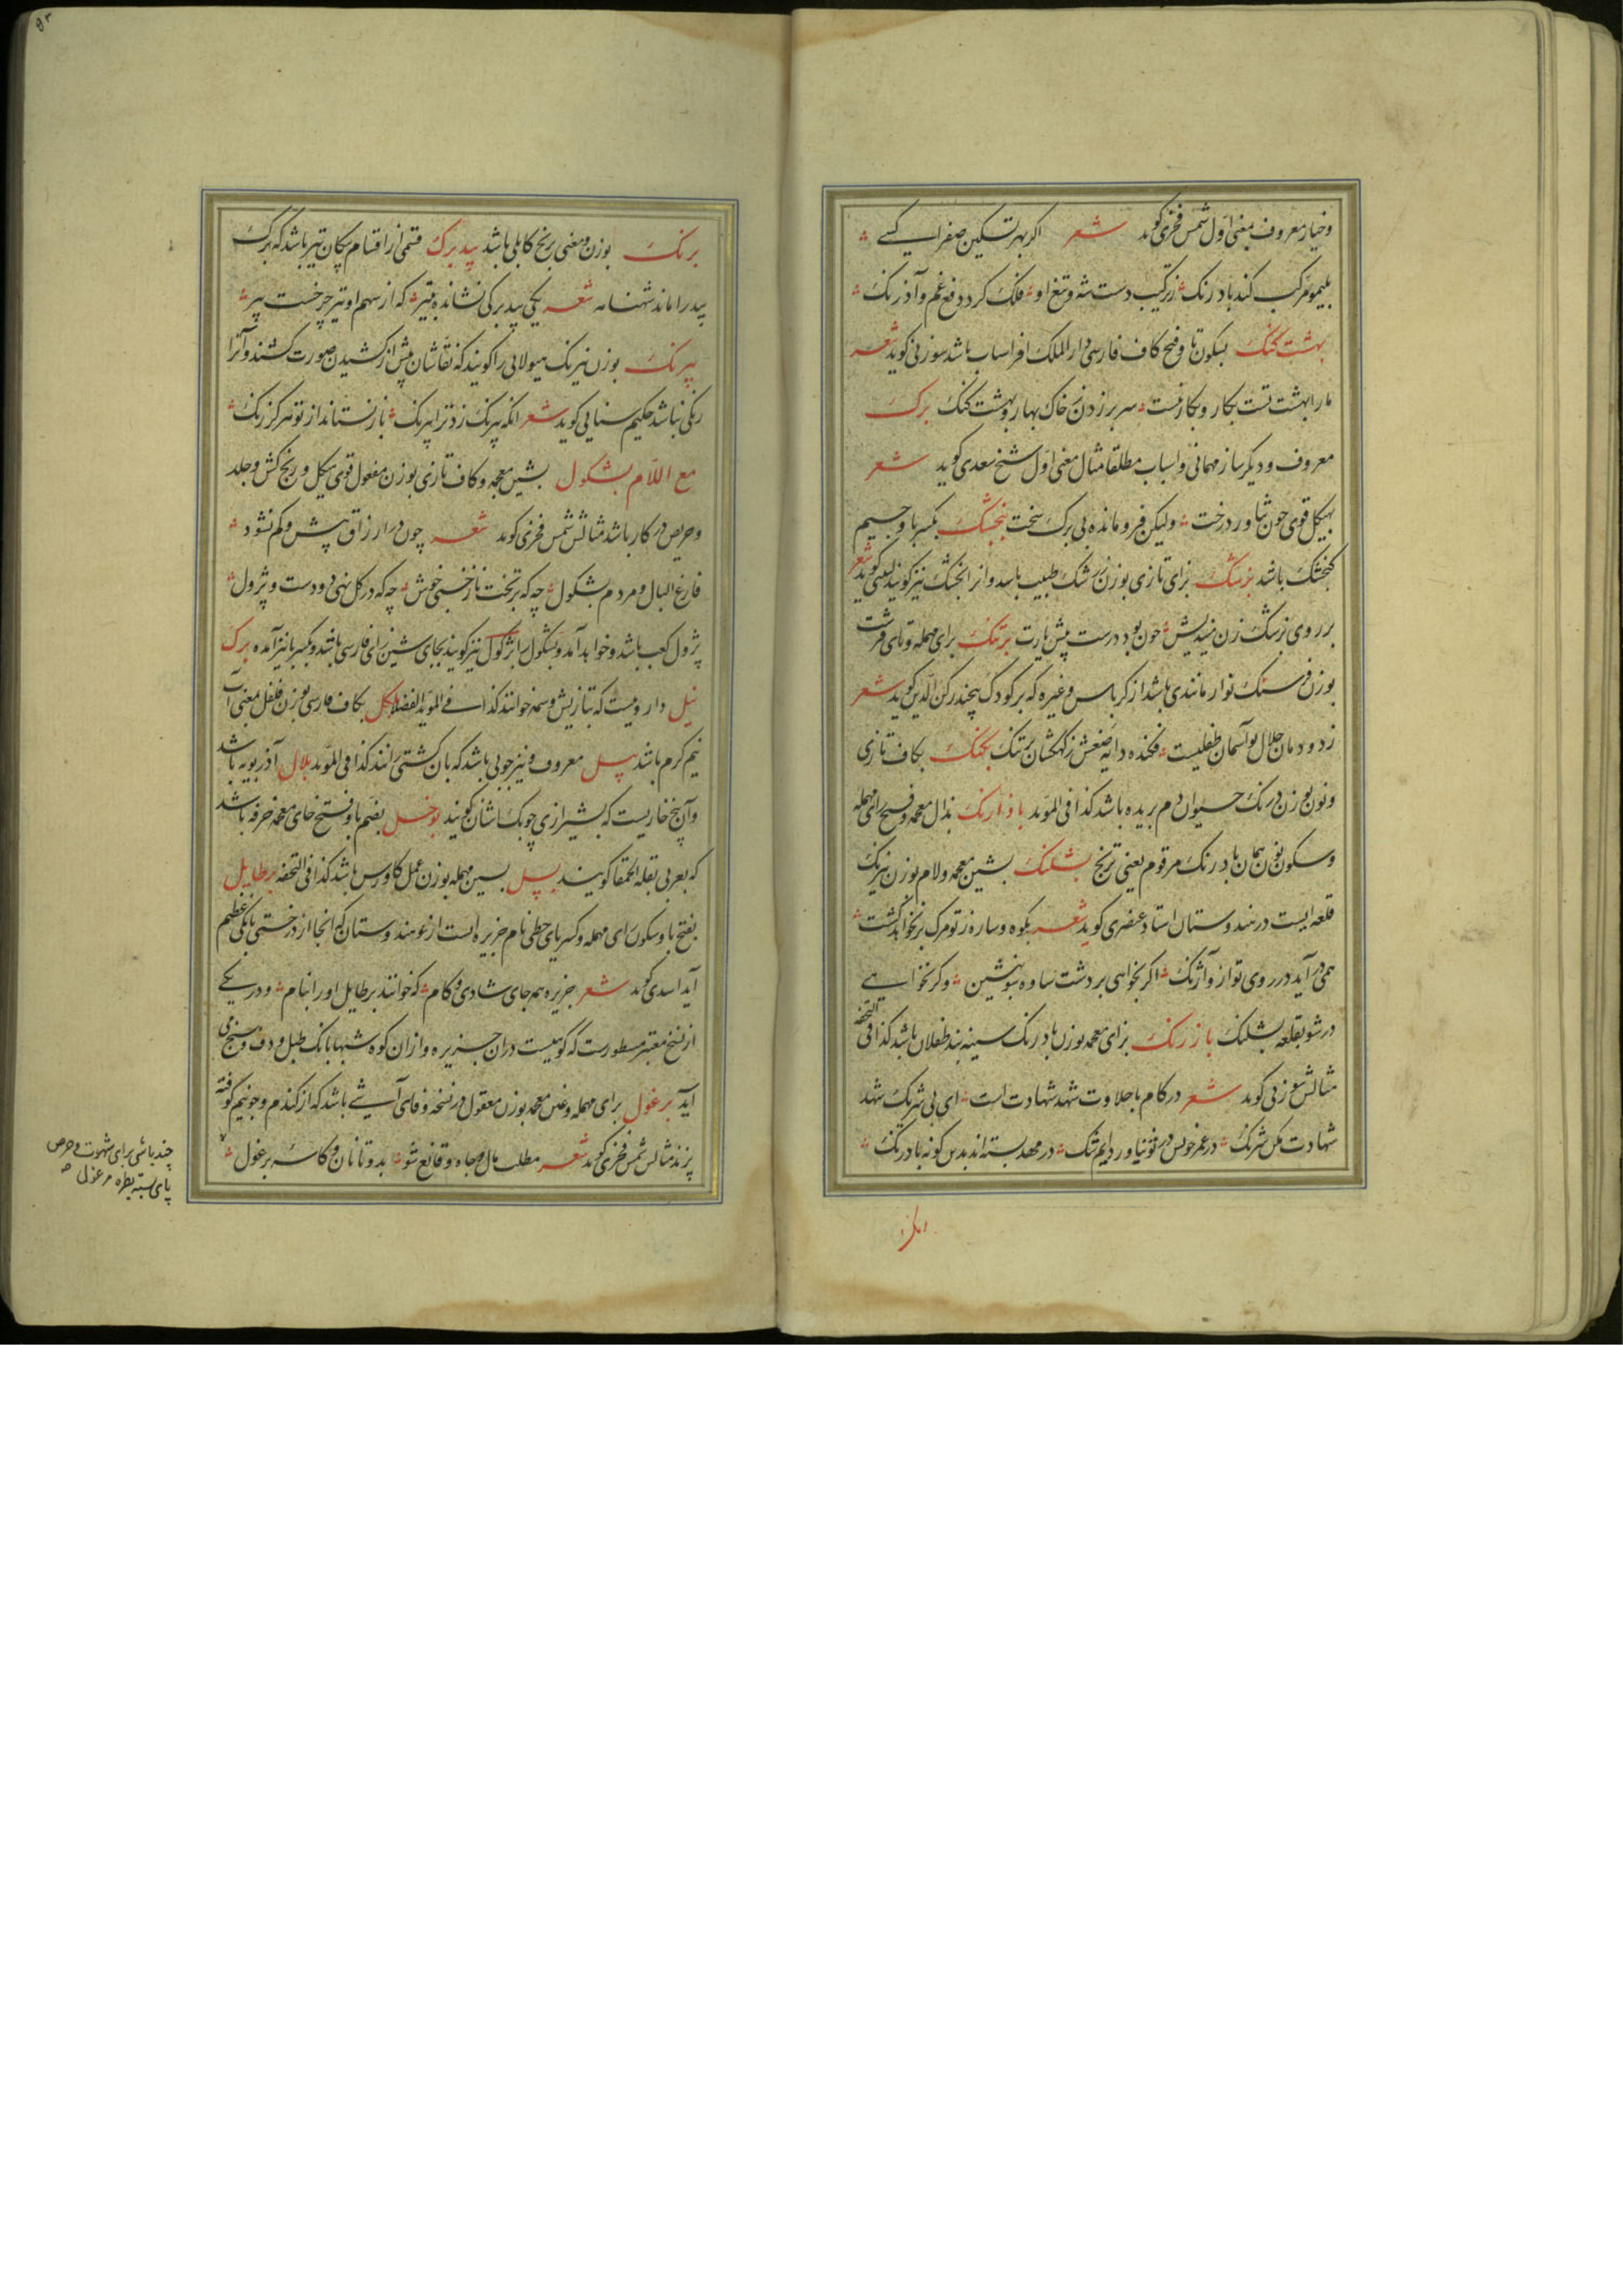 وخیار معروف بمعنی اول شمس فخری کوید شعر اکر بهر تسکین صفرا کسی
بلیمو مرکب کند بادرنک ز ترکیب دست شه و تیغ او فلک کرد دفع غم و آذرنک
بهشت کنک بسکون تا و فتح کاف فارسی دار الملک افراسیاب باشد سوزنی کوید شعر
مارا بهشت تست بکار و بکار نیست سر بر زدن ز خاک بهار و بهشت کنک برک
معروف و دیکر ساز مهمانی و اسباب مطلقا مثال معنی اول شیخ سعدی کوید شعر
بهیکل قوی چون تناور درخت ولیکن فرو مانده بی برک سخت بنجشک بکسر با و جیم
کنجشک باشد بزشک بزای تازی بوزن سرشک طبیب باشد و انرا بجشک نیز کویند لبیبی کوید شعر
بر روی بزشک زن میندیش چون بود درست پیشیارت برتنک برای مهمله و تای قرشت
بوزن فرسنک نوار مانندی باشد از کرباس و غیره که بر کودک پیچند رکن الدین کوید شعر
ز دودمان جلال تو آسمان طفلیست فکنده دایه صنعش ز کهکشان برتنک بکنک بکاف تازی
و نون بوزن درنک حیوان دم بریده باشد کذا فی المؤید باذارنک بذال معجمه و فتح رای مهمله
و سکون نون همان بادرنک مرقوم یعنی ترنج بشلنک بشین معجمه و لام بوزن نیرنک
قلعه ایست در هندوستان استاد عنصری کوید شعر بکوه و ساره ز تو مرک بر نخواهد کشت
همی در آید در روی تو از و آژنک اکر بخواهی بر دشت ساوه شو بنشین و کر نخواهی
در شو بقلعه بشلنک بازرنک بزای معجمه بوزن بادرنک سینه بند طفلان باشد کذا فی التحفه
مثالش سوزنی کوید شعر در کام با حلاوت شهد شهادت است ای بی شریک شهد
شهادت مکن شرنک در عمر خویش در نیاوردیم تنک در مهد بسته اند بدین کونه بادرنک
برنک بوزن و معنی برنج کابلی باشد بید برک قسمی از اقسام پیکان تیر باشد که برک
بید را ماند شهنامه شعر یکی بید برکی نشانده بتیر که از سهم او تیر چرخست پیر
پیرنک بوزن نیرنک هیولایی را کویند که نقاشان پیش از کشیدن صورت کشند و آنرا
رنکی نباشد حکیم سنایی کوید شعر انکه پیرنک زد ترا پیرنک باز نستاند از تو هرکز رنک
مع اللام بشکول بشین معجمه و کاف تازی بوزن مفعول قوی هیکل و رنج کش و جلد
و حریص در کار باشد مثالش شمس فخری کوید شعر چون درار زاق بیش و کم نشود
فارغ البال و مردم بشکول چه که بر تخت ناز خسبی خوش چه که در کل نهی دو دست و پژول
پژول کعب باشد و خواهد آمد و بشکول را بژکول نیز کویند بجای شین زای فارسی باشد و بکسر با نیز آمده برک
نیل داروییست که بتازیش وسمه خوانند کذا فی المؤید الفضلا بکل بکاف فارسی بوزن فلفل بمعنی آب
نیم کرم باشد بیل معروف و نیز چوبی باشد که بآن کشتی رانند کذا فی المؤید بلال آذربویه باشد
و آن بیخ خاریست که بشیرازی چوبک اشنان کویند بوخل بضم با و فتح خای معجمه خرفه باشد
که بعربی بقلة الحمقا کویند بسل بسین مهمله بوزن عمل کاورس باشد کذا فی التحفه برطایل
بفتح با و سکون رای مهمله و کسر یای حطی نام جزیره ایست از هندوستان که انجا از درختی بانکی عظیم
آید اسدی کوید شعر جزیره همه جای شادی و کام که خوانند برطایل اورا بنام و در یکی
از نسخ معتبر مسطورست که کوهیست در ان جزیره و از ان کوه شبها بانک طبل و دف و سنج می
آید برغول برای مهمله و غین معجمه بوزن معقول در نسخه وفائی آشی باشد که از کندم و جو نیم کوفته
پزند مثالش شمس فخری کوید شعر مطلب مال و جاه و قانع شو بدو تا نان و کاسه برغول
چند باشی برای شهوت و حرص
پای بسته بطره مرغول